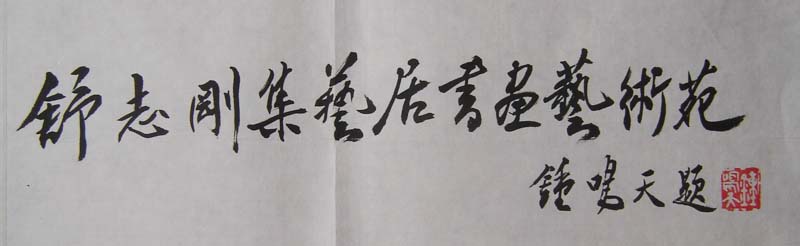 舒志剛集藝居書画藝術苑
鍾鳴天題